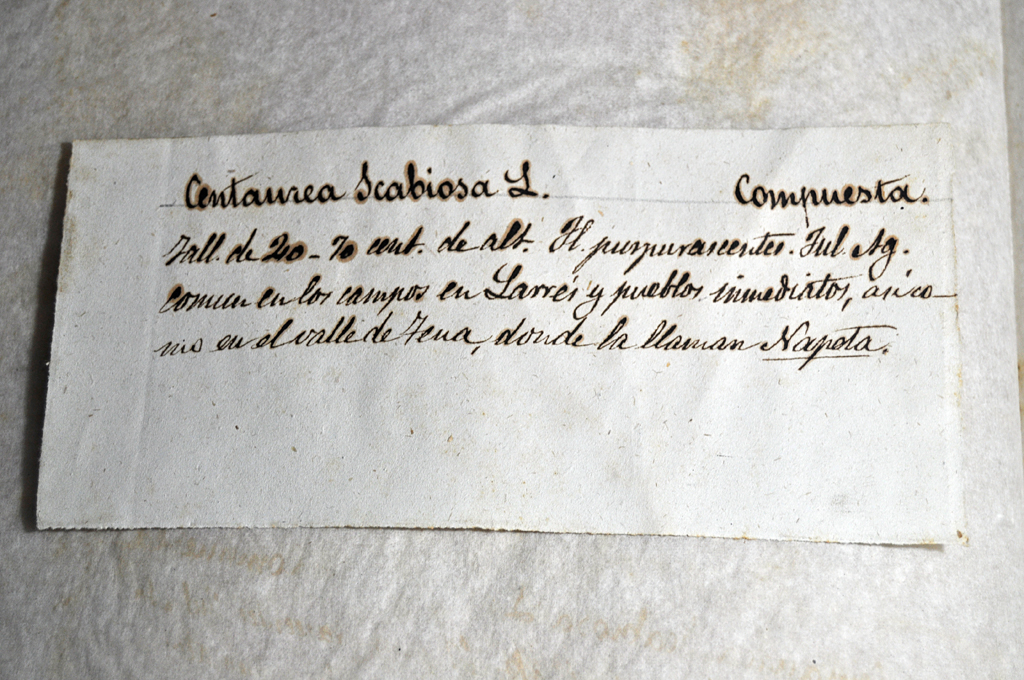 Centaurea Scabiosa L. Compuesta.
Tall. de 20-70 cent. de alt. Fl. purpurascentes. Jul. Ag.
Comun en los campos en Larrés y pueblos inmediatos, asi co-
mo en el valle de Tena, donde la llaman Napota.